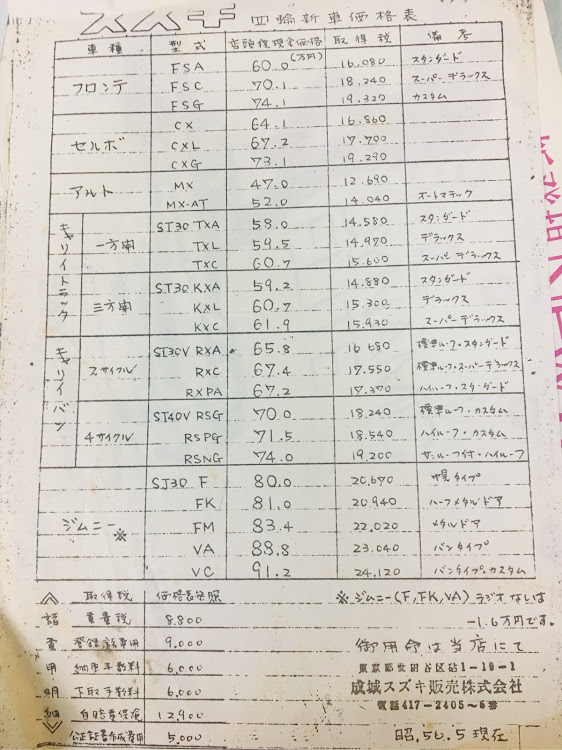 スズキ 四輪新車価格表
車種 型式 店頭渡現金価格 取得税 備考
(万円)
フロンテ FSA 60.0 16.080 スタンダード
FSC 70.1 18.240 スーパーデラックス
FSG 74.1 19.320 カスタム
セルボ CX 64.1 16.860
CXL 67.2 17.700
CXG 73.1 19.290
アルト MX 47.0 12.690
MX-AT 52.0 14.040 オートマチック
キャリイトラック 一方開 ST30 TXA 58.0 14.580 スタンダード
TXL 59.5 14.970 デラックス
TXC 60.7 15.600 スーパーデラックス
三方開 ST30 KXA 59.2 14.880 スタンダード
KXL 60.7 15.300 デラックス
KXC 61.9 15.930 スーパーデラックス
キャリイバン 2サイクル ST30V RXA 65.8 16680 標準ルーフ・スタンダード
RXC 67.4 17.550 標準ルーフ・スーパーデラックス
RXPA 67.2 17.370 ハイルーフ・スタンダード
4サイクル ST40V RSG 70.0 18.240 標準ルーフ・カスタム
RSPG 71.5 18.540 ハイルーフ・カスタム
RSNG 74.0 19.200 サンルーフ付・ハイルーフ
ジムニー※ SJ30 F 80.0 20.670 幌タイプ
FK 81.0 20.940 ハーフメタルドア
FM 83.4 22.020 メタルドア
VA 88.8 23.040 バンタイプ
VC 91.2 24.120 バンタイプ・カスタム
諸費用明細
取得税 価格表参照
重量税 8.800
登録諸費用 9,000
納車手数料 6,000
下取手数料 6,000
自賠責保険 12,900
公正証書作成費用 5,000
※ ジムニー(F,FK,VA)ラジオなしは
-1.6万円です。
御用命は当店にて
東京都世田谷区砧1-16-1
成城スズキ販売株式会社
電話417-2405~6番
昭.56.5 現在